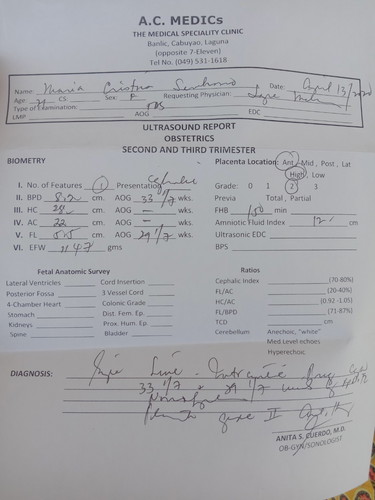 A.C. MEDICs
THE MEDICAL SPECIALITY CLINIC
Banlic, Cabuyao, Laguna
(opposite 7-Eleven)
Tel No. (049) 531-1618
Name: Maria Cristina Date: April 13/2020
Age: CS Sex: F Requesting Physician:
Type of Examination:
LMP AOG EDC
ULTRASOUND REPORT
OBSTETRICS
SECOND AND THIRD TRIMESTER
BIOMETRY
I. No. of Features 1 Presentation Cephalic
II. BPD 8.2 cm. AOG 33 1/7 wks.
III. HC 28 cm. AOG - wks.
IV. AC 22 cm. AOG - wks.
V. FL 5.5 cm. AOG 29 1/7 wks.
VI. EFW 1147 gms
Placenta Location: Ant, Mid, Post, Lat
High, Low
Grade: 0 1 2 3
Previa Total, Partial
FHB 150 min
Amniotic Fluid Index 12 cm
Ultrasonic EDC
BPS
Fetal Anatomic Survey
Lateral Ventricles Cord Insertion
Posterior Fossa 3 Vessel Cord
4-Chamber Heart Colonic Grade
Stomach Dist. Fem. Ep.
Kidneys Prox. Hum. Ep.
Spine Bladder
Ratios
Cephalic Index (70-80%)
FL/AC (20-40%)
HC/AC (0.92 -1.05)
FL/BPD (71-87%)
TCD cm
Cerebellum Anechoic, "white"
Med Level echoes
Hyperechoic
DIAGNOSIS: Live
33 1/7 29 1/7
II
ANITA S. CUERDO, M.D.
OB-GYN/SONOLOGIST